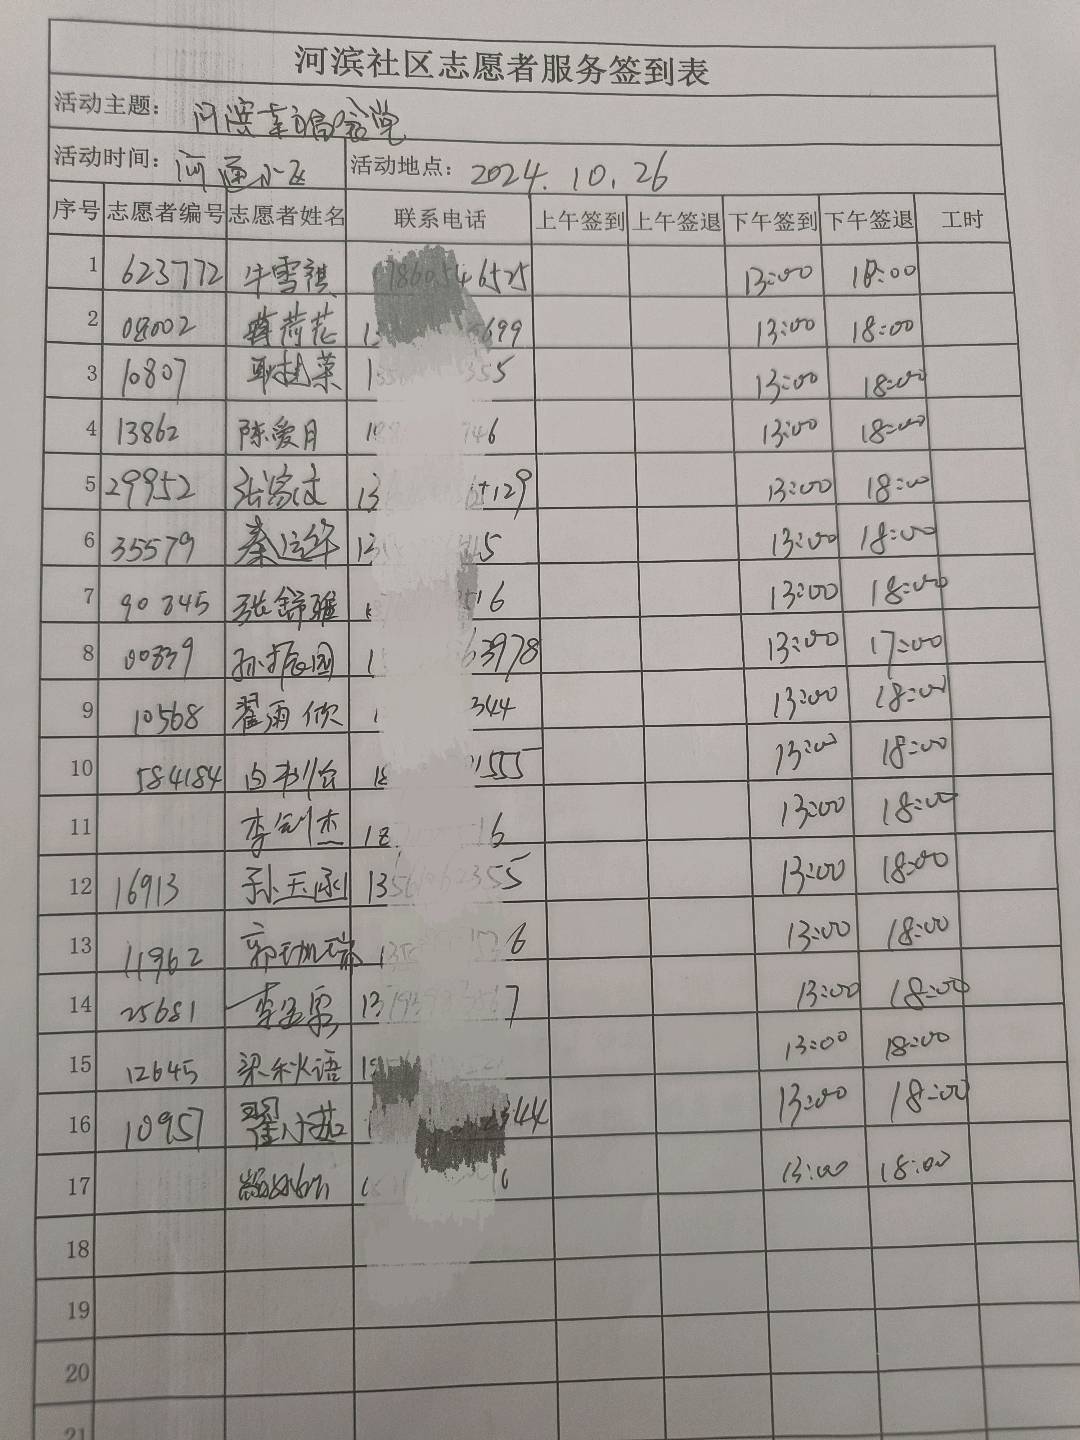 河滨社区志愿者服务签到表
活动主题： 河滨
活动时间： 河通小区 活动地点： 2024.10.26
序号 志愿者编号 志愿者姓名 联系电话 上午签到 上午签退 下午签到 下午签退 工时
1 623772 牛雪祺 13:00 18:00
2 08002 蒋荷花 699 13:00 18:00
3 10807 耿桂菜 355 13:00 18:00
4 13862 陈爱月 746 13:00 18:00
5 29952 129 13:00 18:00
6 35579 秦 13:00 18:00
7 90845 张舒雅 16 13:00 18:00
8 00839 63978 13:00 17:00
9 10568 翟雨欣 344 13:00 18:00
10 584184 1555 13:00 18:00
11 李剑杰 16 13:00 18:00
12 16913 孙玉函 2355 13:00 18:00
13 11962 郭 6 13:00 18:00
14 25681 李 7 13:00 18:00
15 12645 梁秋语 13:00 18:00
16 10957 翟小茹 344 13:00 18:00
17 13:00 18:00
18
19
20
21